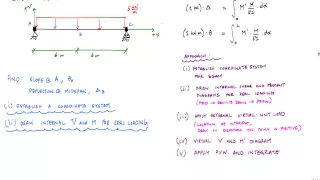 5 kN/m
A
B
C
6 m
6 m
FIND: SLOPE @ A, θA
DEFLECTION @ MIDSPAN, ΔB
(i) ESTABLISH A COORDINATE SYSTEM
(ii) DRAW INTERNAL V AND M FOR REAL LOADING
(1 kN) · Δ = ∫ M' M/EI dx
(1 kN·m) · θ = ∫ M' M/EI · dx
APPROACH:
(i) ESTABLISH COORDINATE SYSTEM
FOR BEAM
(ii) DRAW INTERNAL SHEAR AND MOMENT
DIAGRAMS FOR REAL LOADING
(iii) APPLY EXTERNAL VIRTUAL UNIT LOAD
(LOCATION OF INTEREST,
(iv) VIRTUAL V' AND M' DIAGRAM
(v) APPLY PVW AND INTEGRATE